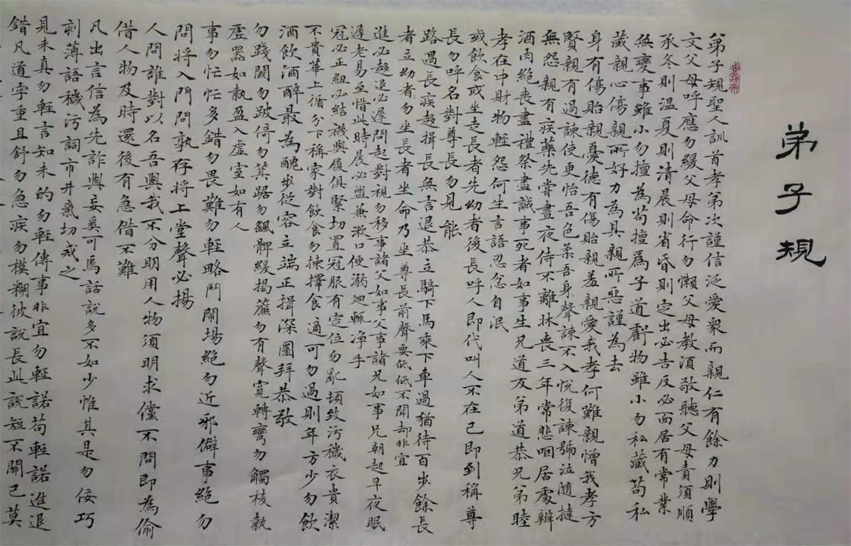 弟子規
弟子規聖人訓首孝弟次謹信泛愛衆而親仁有餘力則學
文父母呼應勿緩父母命行勿懶父母教須敬聽父母責須順
承冬則温夏則清晨則省昏則定出必告反必面居有常業
無變事雖小勿擅為苟擅爲子道虧物雖小勿私藏苟私
藏親心傷親所好力為具親所惡謹為去
身有傷貽親憂德有傷貽親羞親愛我孝何難親憎我孝方
賢親有過諫使更怡吾色柔吾身聲諫不入悅復諫號泣隨撻
無怨親有疾藥先嘗晝夜侍不離牀喪三年常悲咽居處辨
酒肉絶喪盡禮祭盡誠事死者如事生兄道友弟道恭兄弟睦
孝在中財物輕怨何生言語忍忿自泯
或飲食或坐走長者先幼者後長呼人即代叫人不在己即到稱尊
長勿呼名對尊長勿見能
路遇長疾趨揖長無言退恭立騎下馬乘下車過猶待百步餘長
者立幼者勿坐長者坐命乃坐尊長前聲要低低不聞却非宜
進必趨退必遲問起對視勿移事諸父如事父事諸兄如事兄朝起早夜眠
遲老易至惜此時晨必盥兼漱口便溺迴輒净手
冠必正紐必結襪與履俱緊切置冠服有定位勿亂頓致污穢衣貴潔
不貴華上循分下稱家對飲食勿揀擇食適可勿過則年方少勿飲
酒飲酒醉最為醜步從容立端正揖深圓拜恭敬
勿踐閾勿跛倚勿箕踞勿搖髀緩揭簾勿有聲寬轉彎勿觸棱執
虛器如執盈入虛室如有人
事勿忙忙多錯勿畏難勿輕略鬥鬧場絶勿近邪僻事絶勿
問將入門問孰存將上堂聲必揚
人問誰對以名吾與我不分明用人物須明求儻不問即為偷
借人物及時還後有急借不難
凡出言信為先詐與妄奚可焉話說多不如少惟其是勿佞巧
刻薄語穢污詞市井氣切戒之
見未真勿輕言知未的勿輕傳事非宜勿輕諾苟輕諾進退
錯凡道字重且舒勿急疾勿模糊彼說長此說短不關己莫